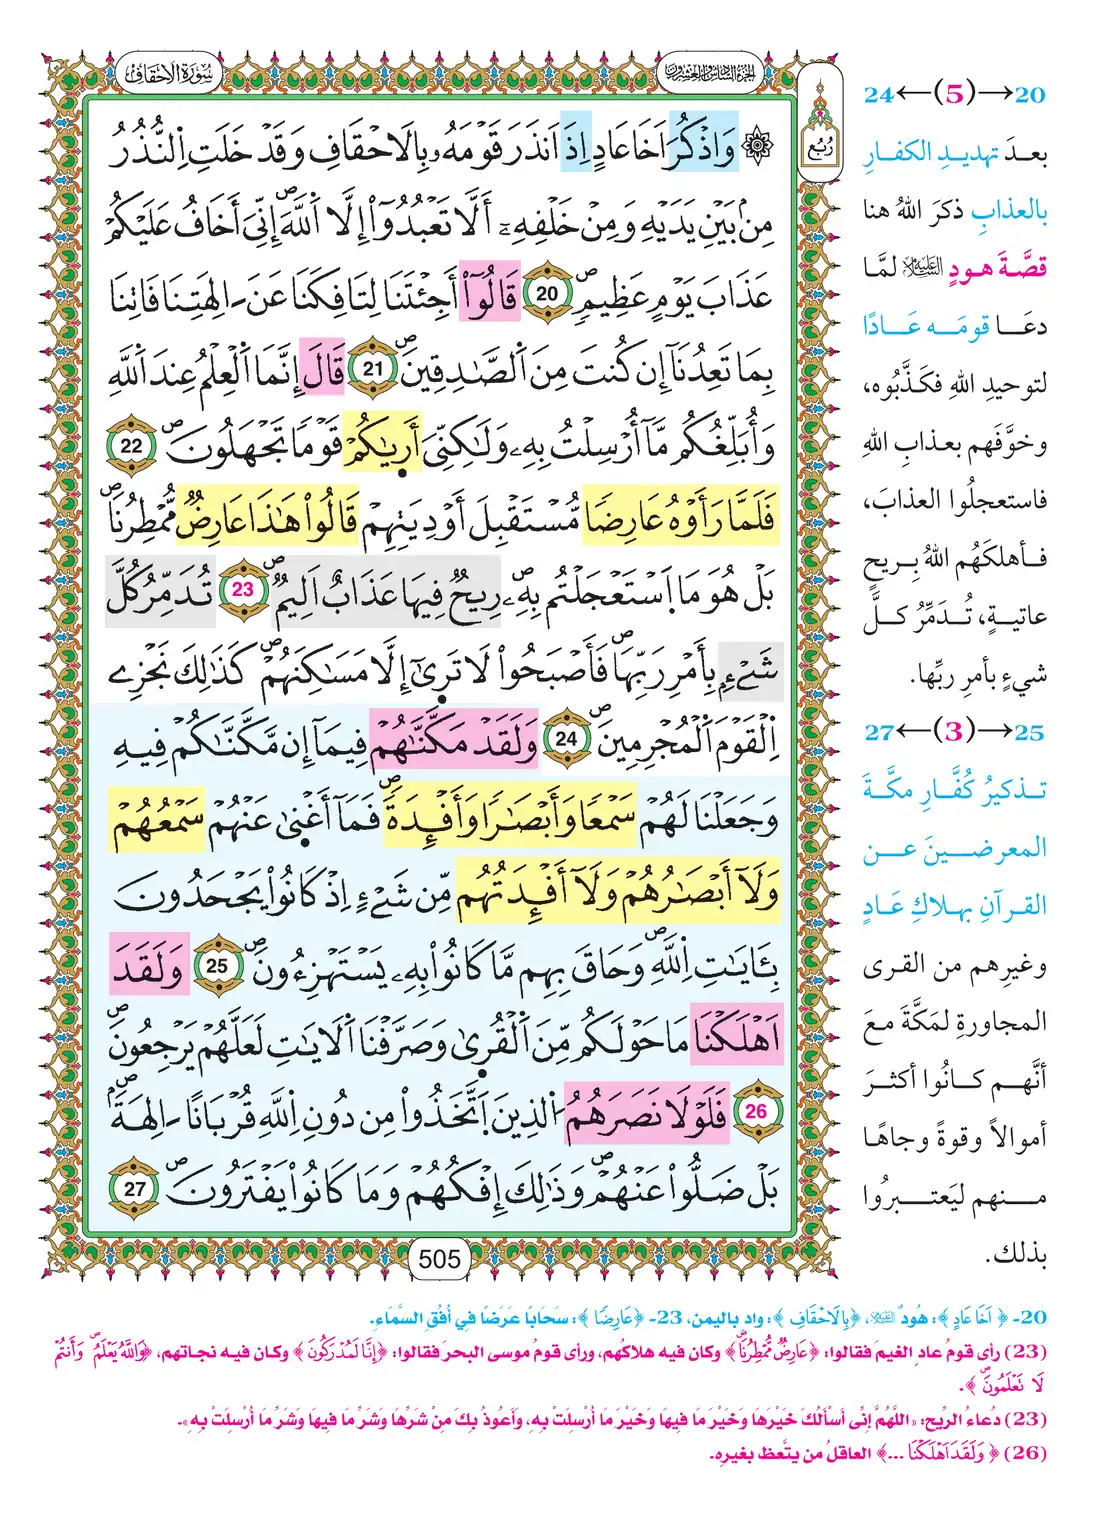 سُورَةُ الْأَحْقَافِ
الجزء السادس والعشرون
رُبُع
وَاذْكُرَ اَخَا عَادٍ اِذَ اَنذَرَ قَوْمَهُۥ بِالَاحْقَافِ وَقَدْ خَلَتِ اِ۬لنُّذُرُ
مِنۢ بَيْنِ يَدَيْهِ وَمِنْ خَلْفِهِۦٓ أَلَّا تَعْبُدُوٓاْ إِلَّا اَ۬للَّهَۖ إِنِّيَ أَخَافُ عَلَيْكُمْ
عَذَابَ يَوْمٍ عَظِيمٖۖ 20 قَالُوٓاْ أَجِئْتَنَا لِتَافِكَنَا عَنَ اٰلِهَتِنَا فَاتِنَا
بِمَا تَعِدُنَآ إِن كُنتَ مِنَ اَ۬لصَّٰدِقِينَۖ 21 قَالَ إِنَّمَا اَ۬لْعِلْمُ عِندَ اَ۬للَّهِ
وَأُبَلِّغُكُم مَّآ أُرْسِلْتُ بِهِۦ وَلَٰكِنِّيَ أَر۪يٰكُمْ قَوْماٗ تَجْهَلُونَۖ 22
فَلَمَّا رَأَوْهُ عَارِضاٗ مُّسْتَقْبِلَ أَوْدِيَتِهِمْ قَالُواْ هَٰذَا عَارِضٞ مُّمْطِرُنَاۖ
بَلْ هُوَ مَا اَ۪سْتَعْجَلْتُم بِهِۦۖ رِيحٞ فِيهَا عَذَابٌ اَلِيمٞۖ 23 تُدَمِّرُ كُلَّ
شَےْءِۢ بِأَمْرِ رَبِّهَاۖ فَأَصْبَحُواْ لَا تَر۪ىٰٓ إِلَّا مَسَٰكِنَهُمْۖ كَذَٰلِكَ نَجْزِے
اِ۬لْقَوْمَ اَ۬لْمُجْرِمِينَۖ 24 وَلَقَدْ مَكَّنَّٰهُمْ فِيمَآ إِن مَّكَّنَّٰكُمْ فِيهِ
وَجَعَلْنَا لَهُمْ سَمْعاٗ وَأَبْصَٰراٗ وَأَفْـِٕدَةٗۖ فَمَآ أَغْن۪ىٰ عَنْهُمْ سَمْعُهُمْ
وَلَآ أَبْصَٰرُهُمْ وَلَآ أَفْـِٕدَتُهُم مِّن شَےْءٍ اِذْ كَانُواْ يَجْحَدُونَ
بِـَٔايَٰتِ اِ۬للَّهِۖ وَحَاقَ بِهِم مَّا كَانُواْ بِهِۦ يَسْتَهْزِءُونَۖ 25 وَلَقَدَ
اَهْلَكْنَا مَا حَوْلَكُم مِّنَ اَ۬لْقُر۪ىٰ وَصَرَّفْنَا اَ۬لَايَٰتِ لَعَلَّهُمْ يَرْجِعُونَۖ
26 فَلَوْلَا نَصَرَهُمُ اُ۬لذِينَ اَ۪تَّخَذُواْ مِن دُونِ اِ۬للَّهِ قُرْبَاناً اٰلِهَةَۢۖ
بَلْ ضَلُّواْ عَنْهُمْۖ وَذَٰلِكَ إِفْكُهُمْ وَمَا كَانُواْ يَفْتَرُونَۖ 27
505
20→(5)←24
بعدَ تهديدِ الكفارِ
بالعذابِ ذكرَ اللهُ هنا
قصَّةَ هودٍ عليه السلام لمَّا
دعَا قومَه عَادًا
لتوحيدِ اللهِ فكَذَّبُوه،
وخوَّفَهم بعذابِ اللهِ
فاستعجلُوا العذابَ،
فأهلكَهُم اللهُ بِريحٍ
عاتيةٍ، تُدَمِّرُ كلَّ
شيءٍ بأمرِ ربِّها.
25→(3)←27
تذكيرُ كُفَّارِ مكَّةَ
المعرضينَ عن
القرآنِ بهلاكِ عَادٍ
وغيرِهم من القرى
المجاورةِ لمَكَّةَ معَ
أنَّهم كانُوا أكثرَ
أموالاً وقوةً وجاهًا
منهم ليَعتبرُوا
بذلك.
20- ﴿اَخَا عَادٍ﴾: هُودٌ عليه السلام، ﴿بِالَاحْقَافِ﴾: واد باليمن، 23- ﴿عَارِضاٗ﴾: سَحَابًا عَرَضًا في أُفُقِ السَّمَاءِ.
(23) رأى قومُ عاد الغيمَ فقالوا: ﴿عَارِضٞ مُّمْطِرُنَاۖ﴾ وكان فيه هلاكُهم، ورأى قومُ موسى البحر فقالوا: ﴿إِنَّا لَمُدْرَكُونَ﴾ وكان فيه نجاتهم، ﴿وَاللَّهُ يَعْلَمُۖ وَأَنتُمْ
لَا تَعْلَمُونَۖ﴾.
(23) دُعاءُ الرِّيح: «اللَّهُمَّ إِنِّى أَسْأَلُكَ خَيْرَهَا وَخَيْرَ مَا فِيهَا وَخَيْرَ مَا أُرْسِلَتْ بِهِ، وَأَعُوذُ بِكَ مِنْ شَرِّهَا وَشَرِّ مَا فِيهَا وَشَرِّ مَا أُرْسِلَتْ بِهِ».
(26) ﴿وَلَقَدَ اَهْلَكْنَا ...﴾ العاقلُ من يتَّعظ بغيرِه.